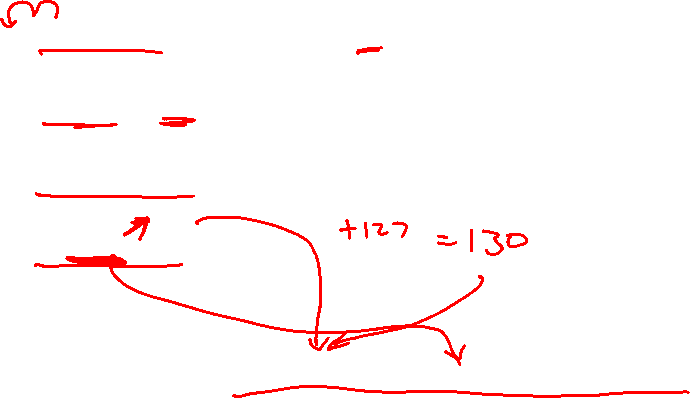 +127 = 130